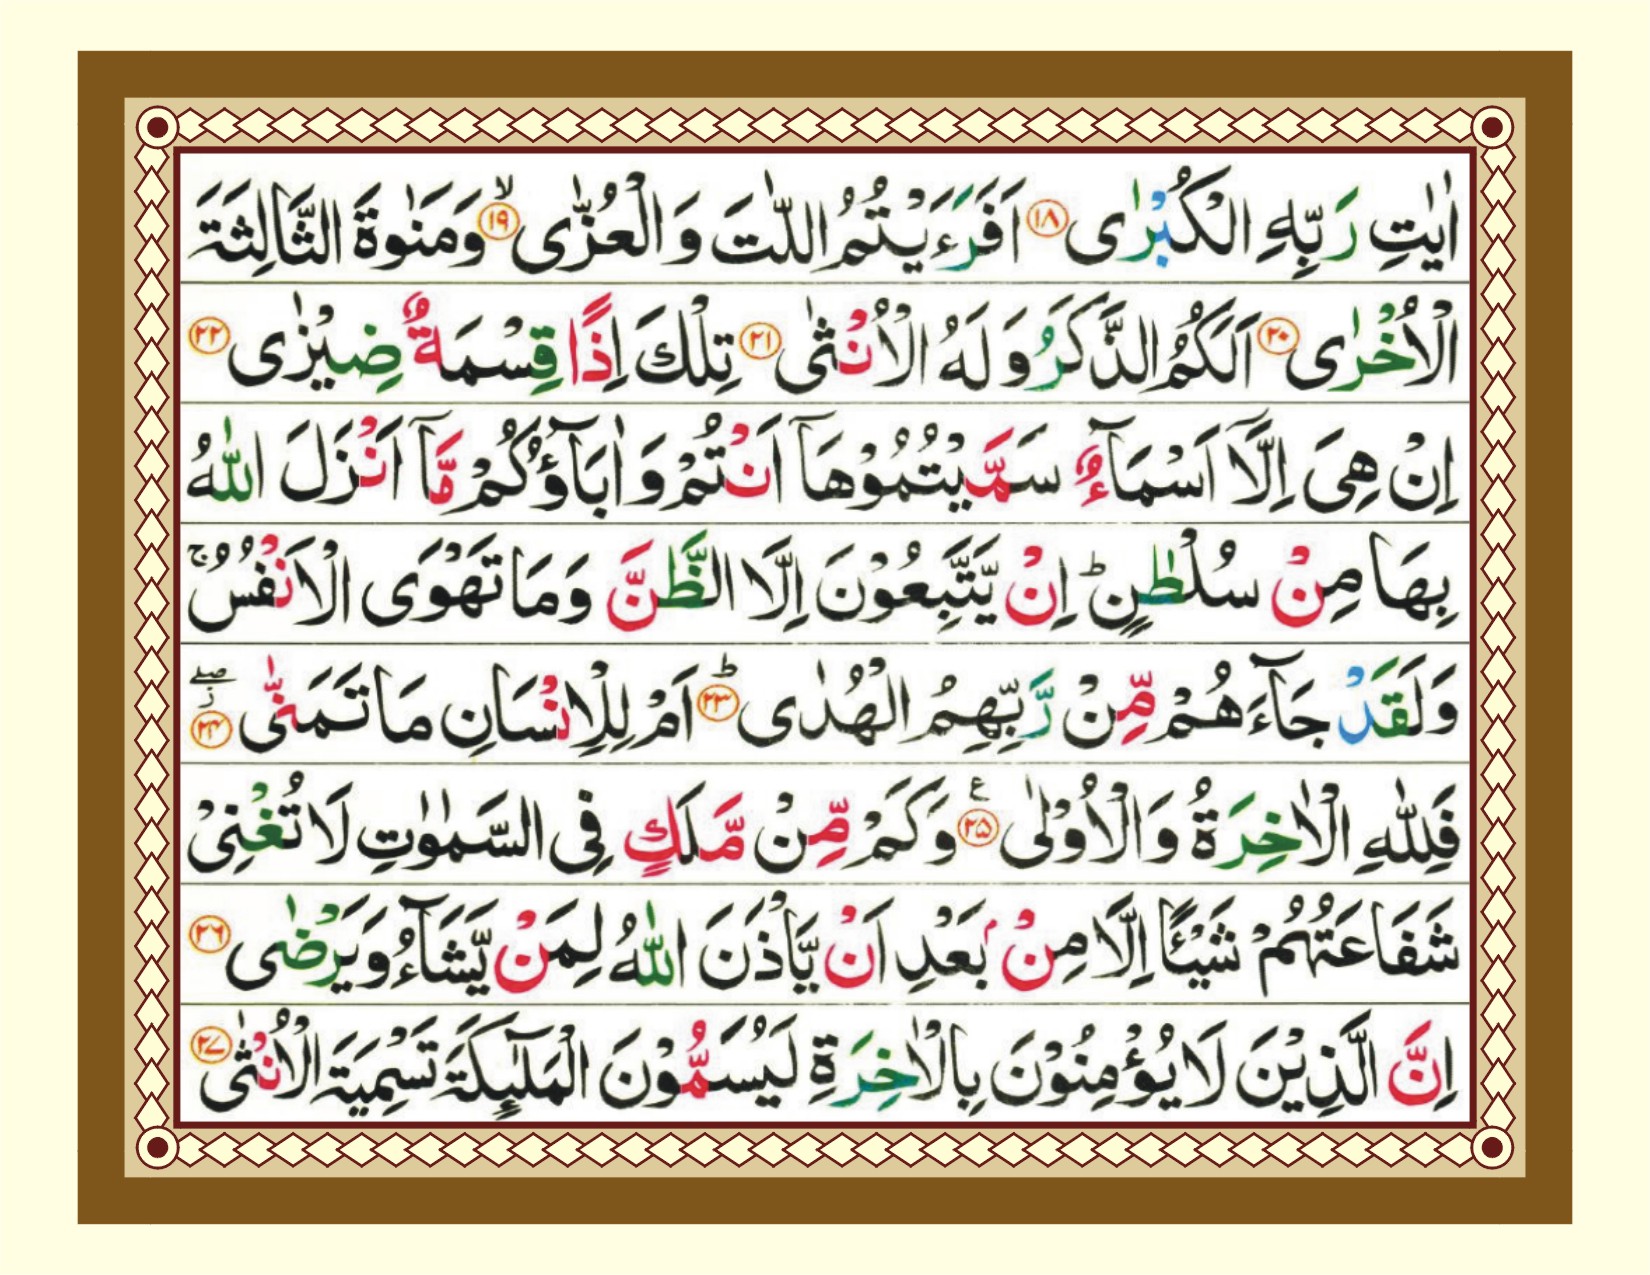 اٰيٰتِ رَبِّهِ الْكُبْرٰى ﴿۱۸﴾ اَفَرَءَيْتُمُ اللّٰتَ وَ الْعُزّٰى ۙ﴿۱۹﴾ وَمَنٰوةَ الثَّالِثَةَ
الْاُخْرٰى ﴿۲۰﴾ اَلَكُمُ الذَّكَرُ وَ لَهُ الْاُنْثٰى ﴿۲۱﴾ تِلْكَ اِذًا قِسْمَةٌ ضِيْزٰى ﴿۲۲﴾
اِنْ هِىَ اِلَّاۤ اَسْمَآءٌ سَمَّيْتُمُوْهَاۤ اَنْتُمْ وَ اٰبَآؤُكُمْ مَّاۤ اَنْزَلَ اللّٰهُ
بِهَا مِنْ سُلْطٰنٍ ؕ اِنْ يَّتَّبِعُوْنَ اِلَّا الظَّنَّ وَمَا تَهْوَى الْاَنْفُسُ ۚ
وَلَقَدْ جَآءَهُمْ مِّنْ رَّبِّهِمُ الْهُدٰى ؕ﴿۲۳﴾ اَمْ لِلْاِنْسَانِ مَا تَمَنّٰى ﴿۲۴﴾ۖز
فَلِلّٰهِ الْاٰخِرَةُ وَالْاُوْلٰى ﴿۲۵﴾ ع وَكَمْ مِّنْ مَّلَكٍ فِى السَّمٰوٰتِ لَا تُغْنِىْ
شَفَاعَتُهُمْ شَيْـًٔا اِلَّا مِنْۢ بَعْدِ اَنْ يَّاْذَنَ اللّٰهُ لِمَنْ يَّشَآءُ وَيَرْضٰى ﴿۲۶﴾
اِنَّ الَّذِيْنَ لَا يُؤْمِنُوْنَ بِالْاٰخِرَةِ لَيُسَمُّوْنَ الْمَلٰٓئِكَةَ تَسْمِيَةَ الْاُنْثٰى ﴿۲۷﴾